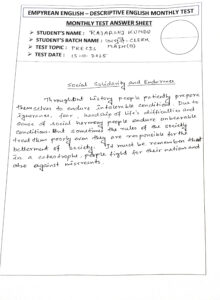 EMPYREAN ENGLISH – DESCRIPTIVE ENGLISH MONTHLY TEST
MONTHLY TEST ANSWER SHEET
➤ STUDENT'S NAME: RAJARSHI KUNDU
➤ STUDENT'S BATCH NAME: CLERK
➤ TEST TOPIC: PRECIS MAIN(S)
➤ TEST DATE: 15-10-2025
Social Solidarity and Endurance
Throughout history people patiently prepare
themselves to endure intolerable condition. Due to
ignorance, fear, hardship of life's difficulties and
sense of social harmony people endure unbearable
condition. But sometimes the rules of the society
treat them poorly even they are responsible for the
betterment of society. It must be remember that
in a catastrophe people fight for their nation and
also against miscreants.